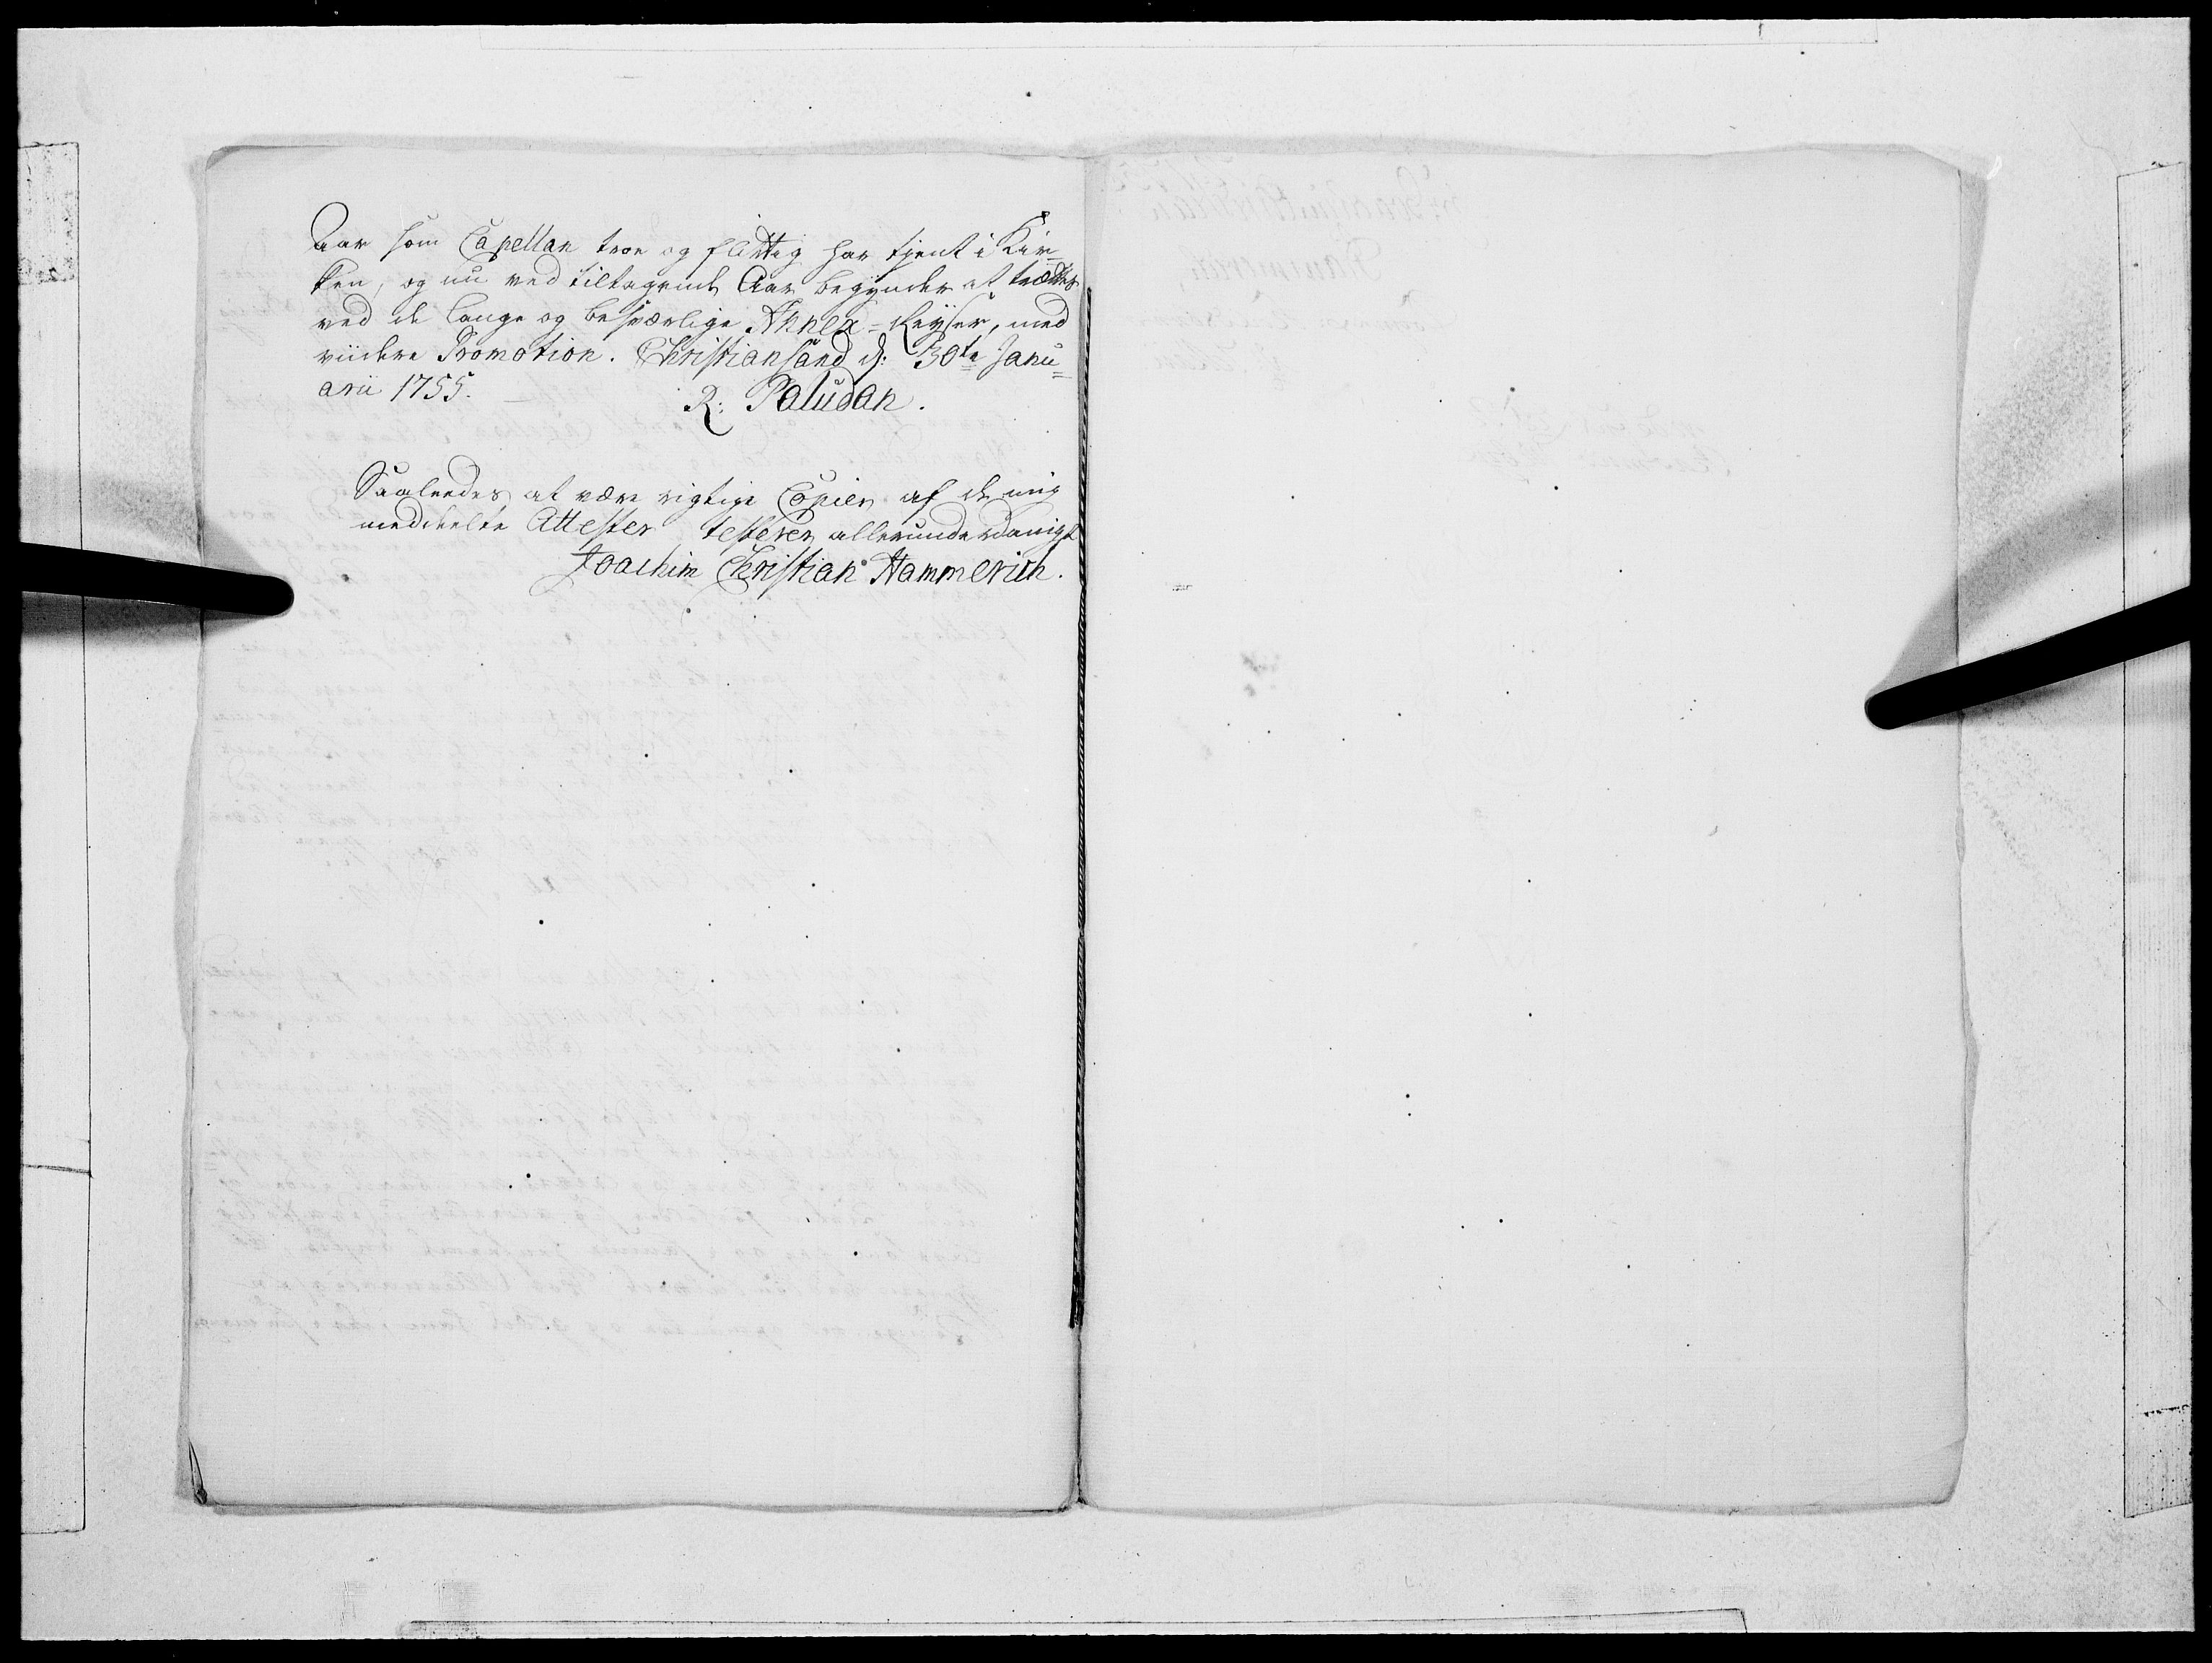 Aar som Capellan troe og flittig har tjent i Kir=
ken, og nu ved tiltagende Aar begynder at trættes
ved de lange og besværlige Annex=Reyser, med
viidere Promotion. Christiansand d: 30te Janu=
arii 1755.
R: Paludan.
Saaleedes at være rigtige Copier af de mig
meddeelte Attester testerer allerunderdanigst
Joachim Christian Hammerich.